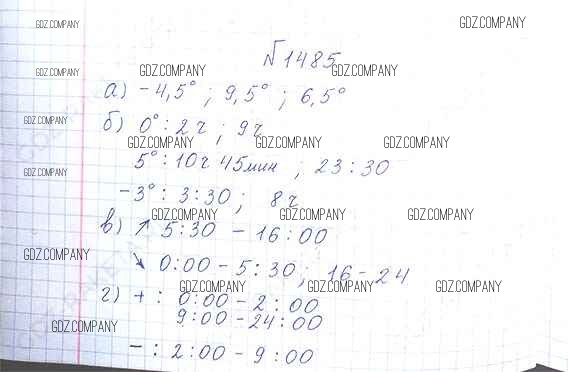 GDZ.COMPANY GDZ.COMPANY
№1485
GDZ.COMPANY GDZ.COMPANY GDZ.COMPANY
а) -4,5° ; 9,5° ; 6,5°
GDZ.COMPANY
б) 0° : 2ч ; 9ч
GDZ.COMPANY GDZ.COMPANY GDZ.COMPANY
5° : 10ч 45мин ; 23:30
GDZ.COMPANY
-3° : 3:30 ; 8ч
GDZ.COMPANY GDZ.COMPANY GDZ.COMPANY
в) ↗ 5:30 - 16:00
GDZ.COMPANY
↘ 0:00 - 5:30 ; 16-24
GDZ.COMPANY GDZ.COMPANY GDZ.COMPANY
г) + : 0:00 - 2:00
9:00 - 24:00
GDZ.COMPANY
- : 2:00 - 9:00